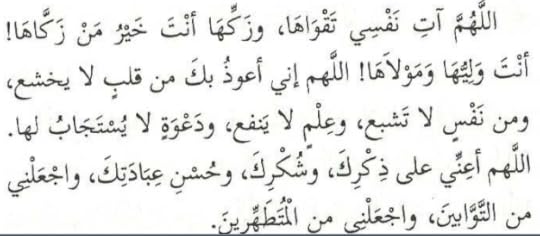 اللَّهُمَّ آتِ نَفْسِي تَقْوَاهَا، وزَكِّهَا أنْتَ خَيْرُ مَنْ زَكَّاهَا!
أنْتَ وَلِيُّهَا وَمَوْلاَهَا! اللهم إني أعوذُ بكَ من قلبٍ لا يخشع،
ومن نَفْسٍ لا تَشبع، وعِلْمٍ لا يَنفع، ودَعْوَةٍ لا يُسْتَجَابُ لها.
اللهم أعِنِّي على ذِكْرِكَ، وشُكْرِكَ، وحُسْنِ عِبَادَتِكَ، واجْعَلْنِي
من التَّوَّابينَ، واجْعَلْنِي من الْمُتَطَهِّرِينَ.